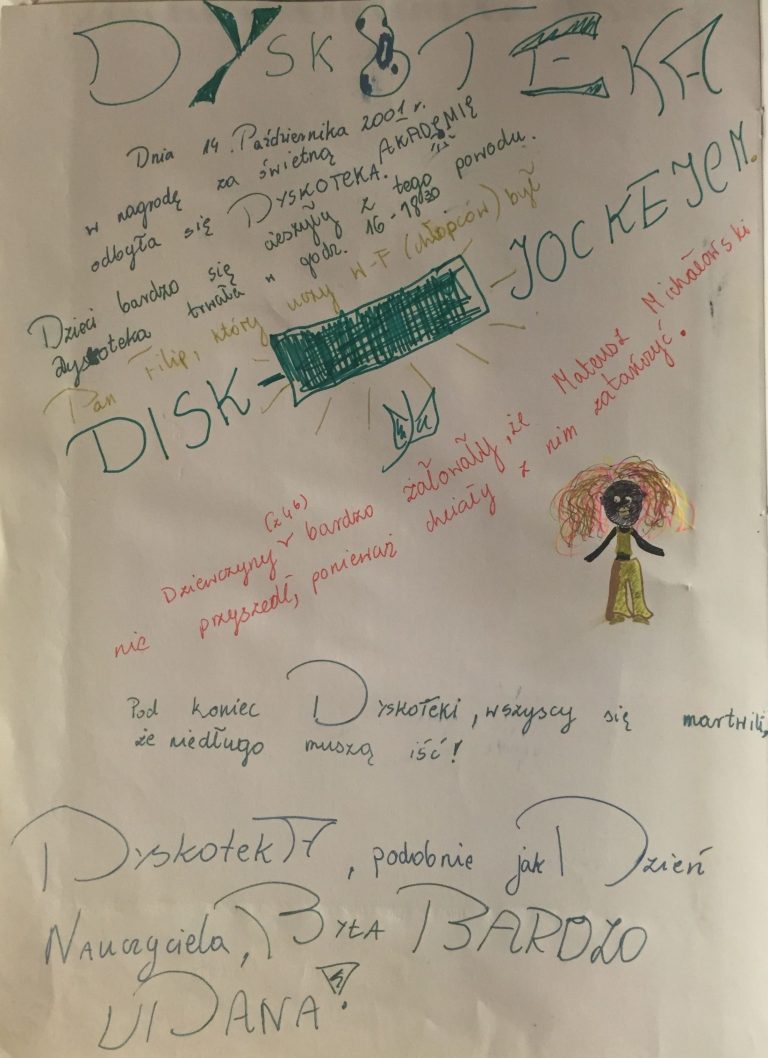 DYSKOTEKA
Dnia 14. Października 2001 r.
w nagrodę za świetną AKADEMIĘ
odbyła się DYSKOTEKA.
Dzieci bardzo się cieszyły z tego powodu.
Dyskoteka trwała w godz. 16-18³⁰
Pan Filip, który uczy W-F (chłopców) był
DISK-JOCKEJEM.
Dziewczyny (z 4b) bardzo żałowały, że Mateusz Michałowski
nie przyszedł, ponieważ chciały z nim zatańczyć.
Pod koniec Dyskoteki, wszyscy się martwili,
że niedługo muszą iść!
DyskotekA, podobnie jak Dzień
Nauczyciela, Była BARDZO
UDANA!